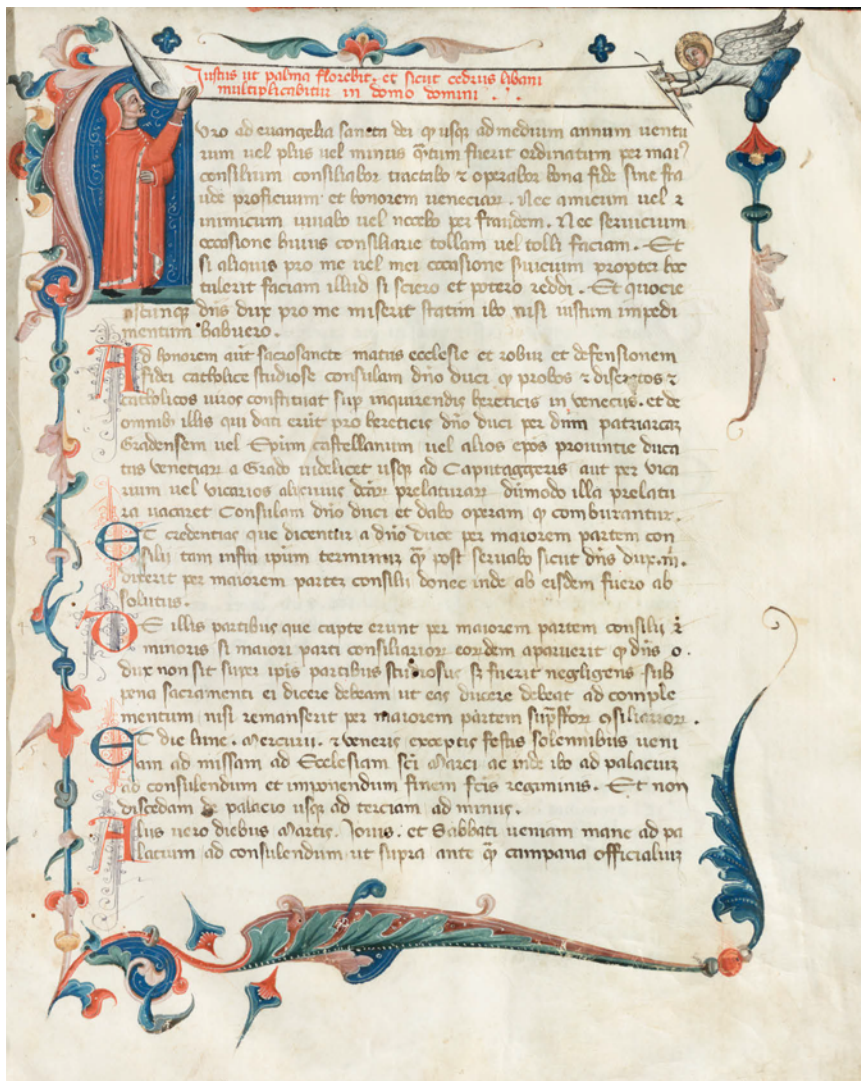 Iustus ut palma florebit. et sicut cedrus libani
multiplicabitur in domo domini
uro ad euangelia sancta dei q usq ad medium annum ventu
rum uel plus uel minus qtum fuerit ordinatum per mai9
consilium consiliabor tractabo ⁊ operabor bona fide sine fra
ude proficuum et honorem veneciar. Nec amicum uel ⁊
inimicum iuuabo uel nocebo per fraudem. Nec seruicium
occasione huius consiliarie tollam uel tolli faciam. Et
si aliquis pro me uel mei occasione suicium propter hoc
tulerit faciam illud si sciero et potero reddi. Et quocie
nscunq dns dux pro me miserit statim ibo nisi iustum impedi
mentum habuero.
Ad honorem aut sacrosancte matris ecclesie et robur et defensionem
fidei catholice studiose consulam dno duci q probos ⁊ discretos ⁊
catholicos uiros constituat sup inquirendis hereticis in veneciis. et de
omnib illis qui dati erut pro hereticis dno duci per dnm patriarcaz
Gradensem uel Epum castellanum uel alios epos prouintie duca
tus venetiar a Grado uidelicet usq ad Caputaggeris aut per uica
rium uel vicarios alicuius dcar prelaturar dumodo illa prelatu
ra uacaret Consulam dno duci et dabo operam q comburantur.
Et credentias que dicentur a dno duce per maiorem partem con
silii tam infra ipum terminum q post seruabo sicut dns dux. m.
dixerit per maiorem partez consilii donec inde ab eisdem fuero ab
solutus.
De illis partibus que capte erunt per maiorem partem consilii ⁊
minoris si maiori parti consiliarior eordem aparuerit q dns
dux non sit super ipis partibus studiosus sz fuerit negligens sub
pena sacramenti ei dicere debeam ut eas ducere debeat ad comple
mentum nisi remanserit per maiorem partem supstor osiliarior.
Et die lune. Mercurii. ⁊ veneris exceptis festis solennibus ueni
am ad missam ad Ecclesiam sci Marci ac inde ibo ad palaciuz
ad consulendum et imponendum finem fcis regiminis. Et non
discedam de palacio usq ad terciam ad minus.
Aliis uero diebus Martis. Iouis. et Sabbati ueniam mane ad pa
latium ad consulendum ut supra ante q campana officialiuz